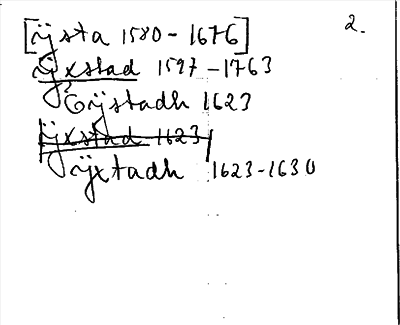 2.
[ÿsta 1580-1676]
ÿxstad 1597-1763
Eÿstadh 1623
ÿxstad 1623
ÿxtadh 1623-1630